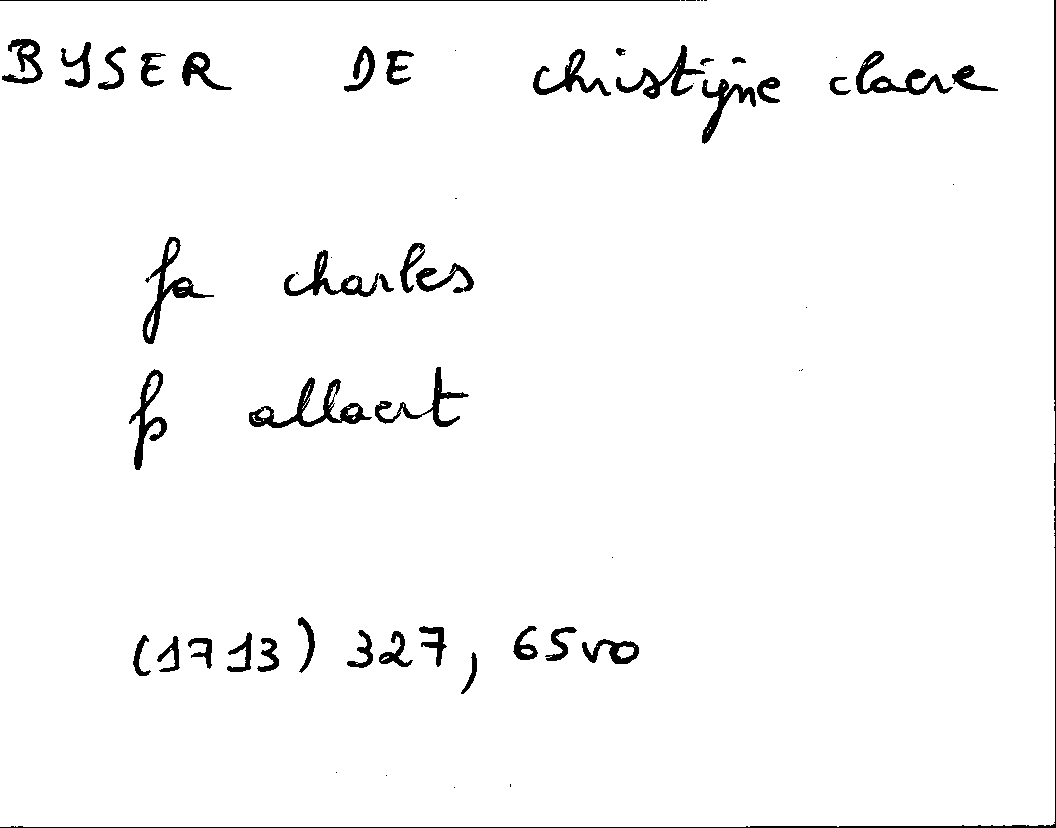 BYSER DE christijne claere
fa charles
fs allaert
(1713) 327, 65vo